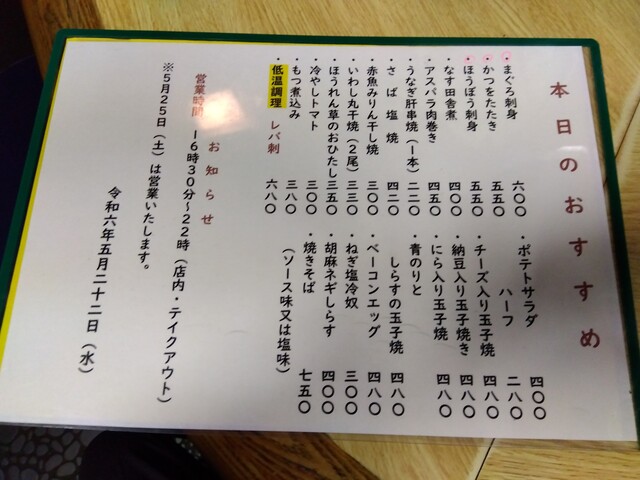 本日のおすすめ
・まぐろ刺身 六〇〇
・かつをたたき 五五〇
・ほうぼう刺身 五五〇
・なす田舎煮 四〇〇
・アスパラ肉巻き 四五〇
・うなぎ肝串焼(1本) 二二〇
・さば塩焼 四二〇
・赤魚みりん干し焼 三〇〇
・いわし丸干焼(2尾) 三三〇
・ほうれん草のおひたし 三五〇
・冷やしトマト 三〇〇
・もつ煮込み 三八〇
・低温調理 レバ刺 六八〇
・ポテトサラダ 四〇〇
ハーフ 二八〇
・チーズ入り玉子焼 四八〇
・納豆入り玉子焼き 四八〇
・にら入り玉子焼 四八〇
・青のりと
しらすの玉子焼 四八〇
・ベーコンエッグ 四八〇
・ねぎ塩冷奴 三〇〇
・胡麻ネギしらす 四〇〇
・焼きそば 七五〇
(ソース味又は塩味)
お知らせ
営業時間 16時30分~22時(店内・テイクアウト)
※5月25日(土)は営業いたします。
令和六年五月二十二日(水)